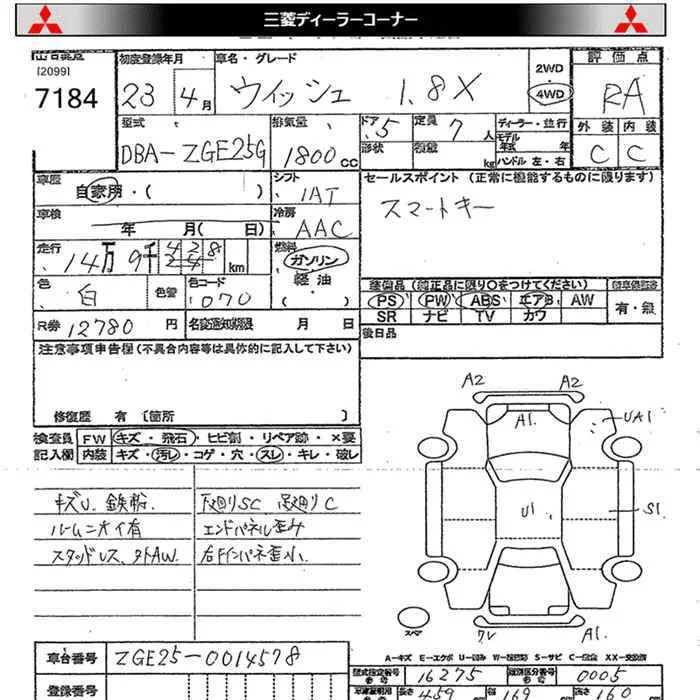 三菱ディーラーコーナー
[2099]
7184
初度登録年月
23 4月
車名・グレード
ウィッシュ 1.8X
2WD
4WD
評価点
RA
外装 内装
C C
型式
DBA-ZGE25G
排気量
1800cc
ドア 5
形状
定員 7人
積量 kg
ディーラー・並行
モデル年式 年
ハンドル 左・右
車歴
自家用・( )
シフト
IAT
車検
年 月( 日)
冷房
AAC
走行
14万9千 428 km
燃料
ガソリン
軽油
・( )
色
白
色替
色コード
070
R券 12780円
名変通知期限 月 日
セールスポイント (正常に機能するものに限ります)
スマートキー
装備品 (純正品に限り○をつけてください)
PS PW ABS エアB AW
SR ナビ TV カワ
有・無
後日品
注意事項申告欄(不具合内容等は具体的に記入して下さい)
修復歴 有 [箇所 ]
検査員記入欄
FW キズ・飛石・ヒビ割・リペア跡・×要
内装 キズ・汚レ・コゲ・穴・スレ・キレ・破レ
キズU、鉄粉
ルームニオイ有
スタッドレス、外AW
下廻りSC 足廻りC
エンドパネル歪み
右Fインパネ歪小
A2 A2
A1
UA1
U1
S1
スペア
A1
A-キズ E-エクボ U-凹み W-波凹 S-サビ C-腐食 XX-交換済
車台番号 ZGE25-0014578
登録番号
型式指定番号 16275
類別区分番号 0005
長さ 459
169
高さ 160